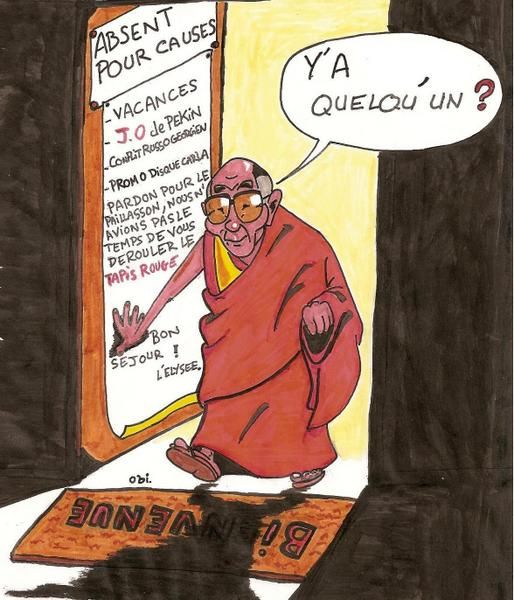 ABSENT
POUR CAUSES
- VACANCES
- J.O de PEKIN
- CONFLIT RUSSO GEORGIEN
- PROMO DISQUE CARLA
PARDON POUR LE
PAILLASSON, NOUS N'
AVIONS PAS LE
TEMPS DE VOUS
DEROULER LE
TAPIS ROUGE
BON
SEJOUR !
L'ELYSEE.
Y'A
QUELQU'UN ?
Obi.
BIENVENUE